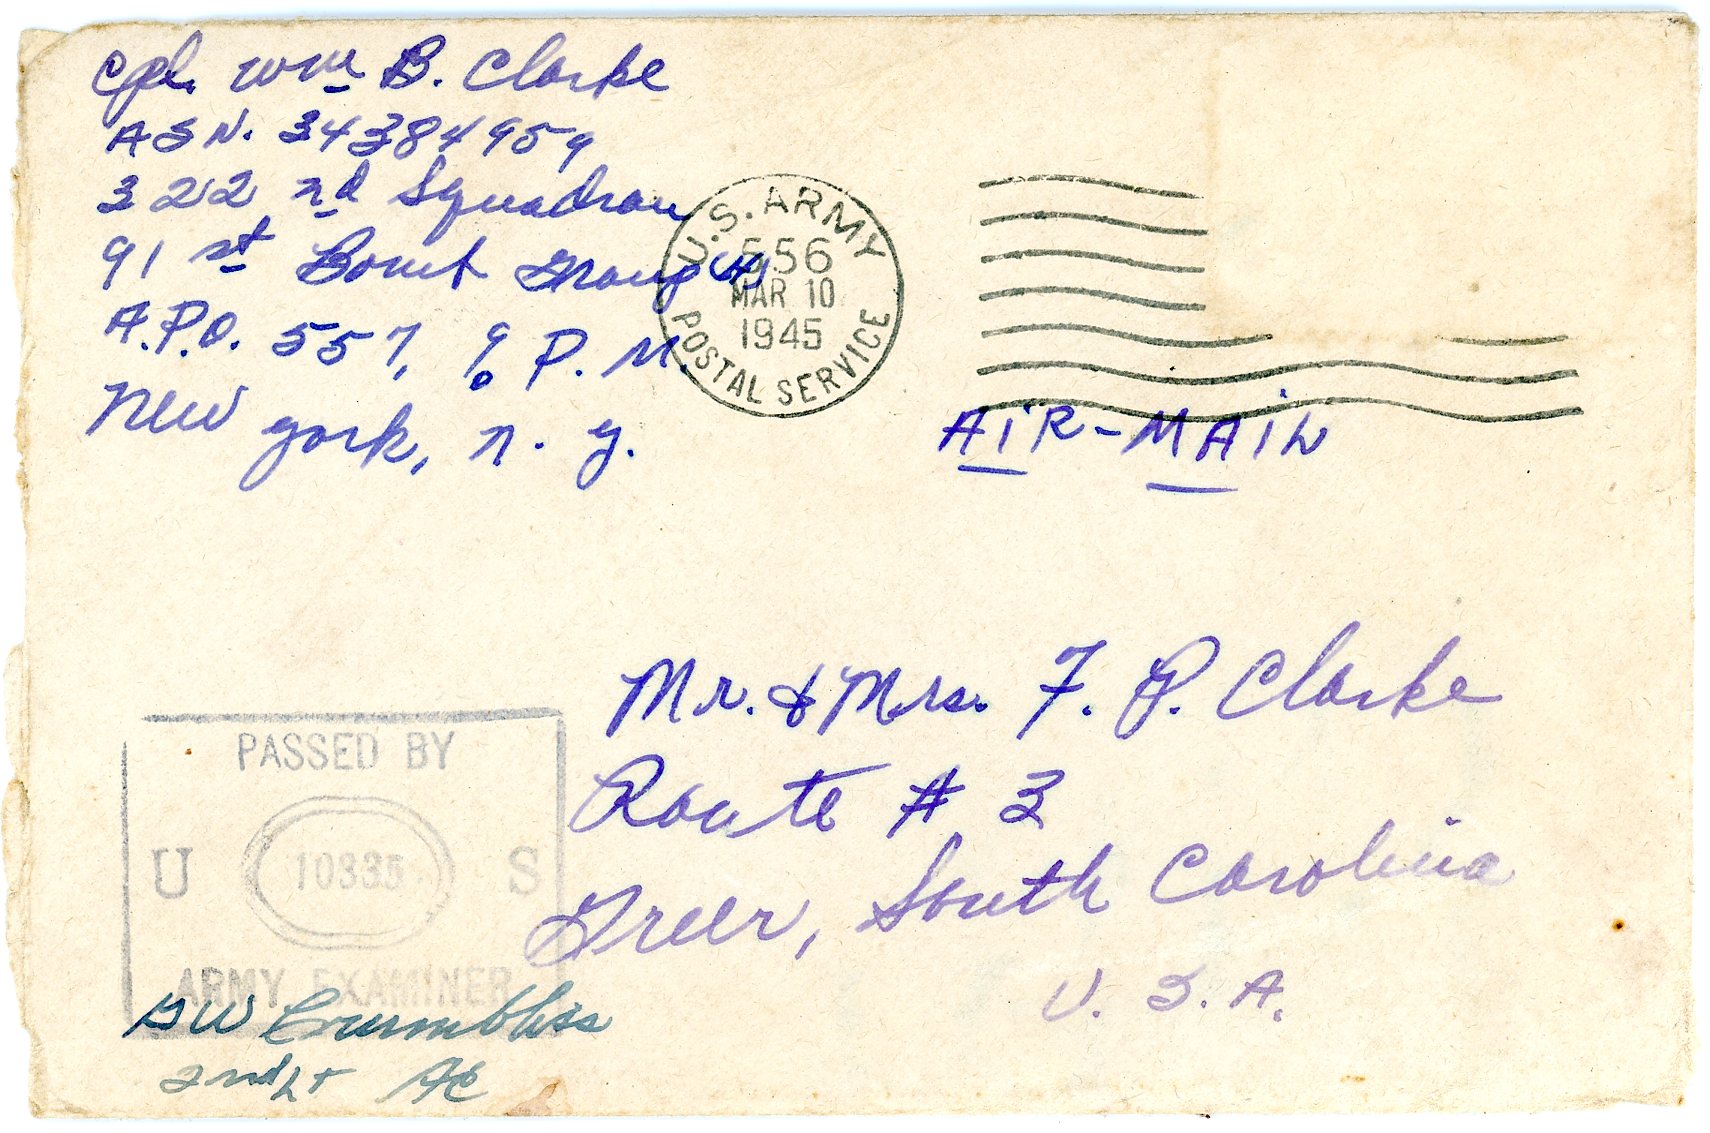 Cpl. Wm B. Clarke
ASN. 34384959
322nd Squadron
91st Bomb Group (H)
A.P.O. 557, % P.M.
New York, N.Y.
U.S. ARMY
556
MAR 10
1945
POSTAL SERVICE
AiR-MAiL
Mr. & Mrs. F. P. Clarke
Route # 3
Greer, South Carolina
U.S.A.
PASSED BY
U 10335 S
ARMY EXAMINER
GW Crumbliss
2nd Lt AC